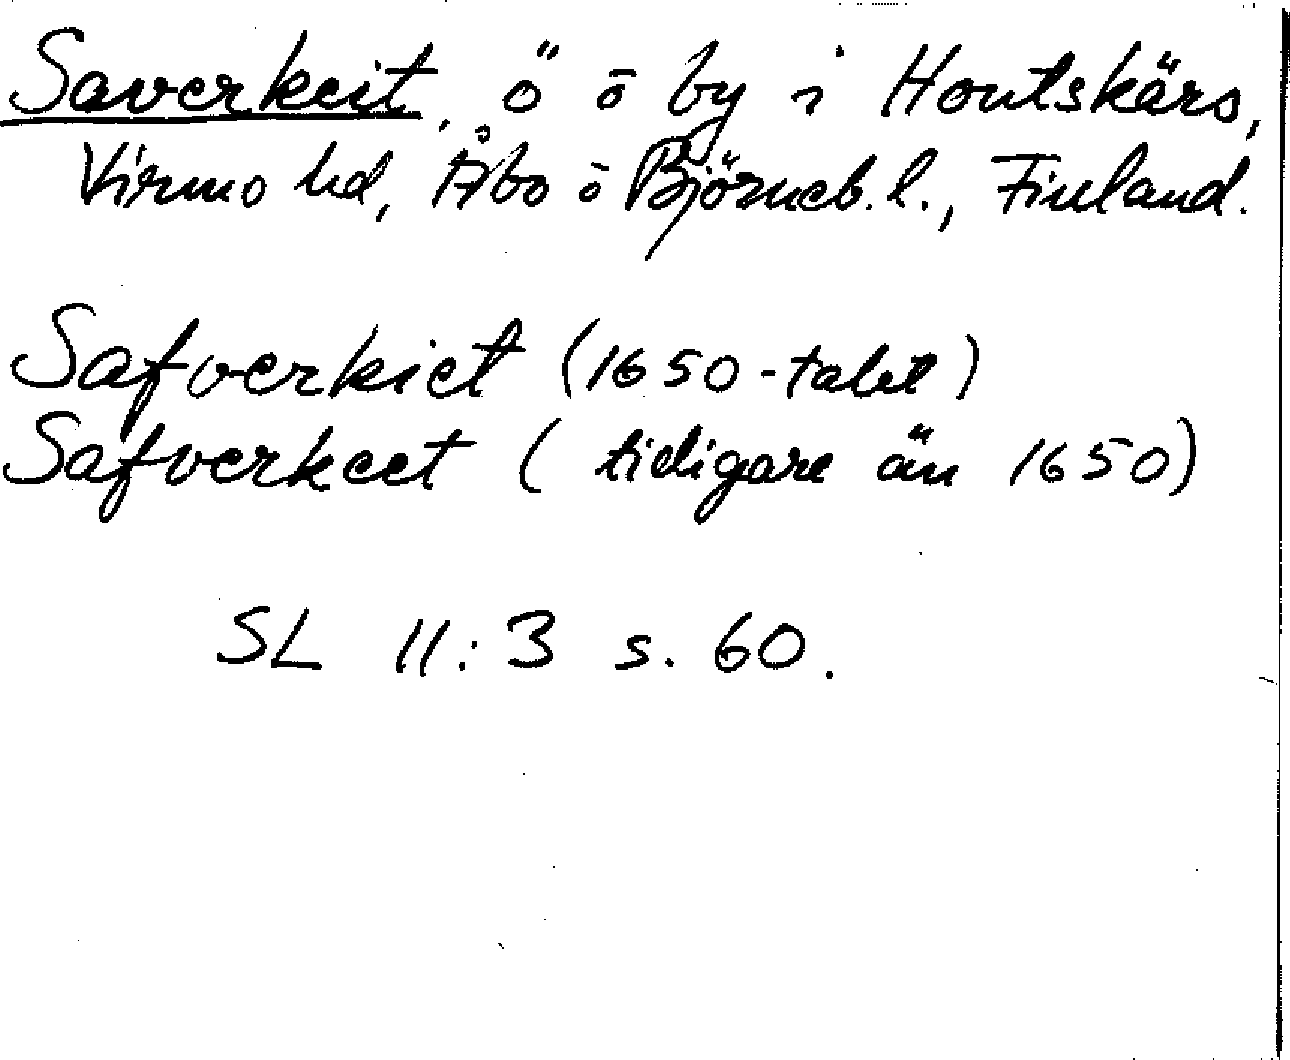 Saverkeit, ö ō by i Houtskärs,
Virmo hd, Åbo ō Björneb. l., Finland.
Safverkiet (1650-talet)
Safverkeet (tidigare än 1650)
SL 11:3 s. 60.